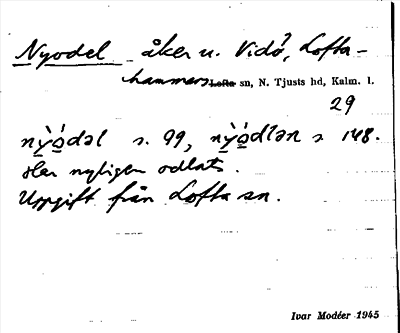 Nyodel åker u. Vidö, Lofta-
hammars Lofta sn, N. Tjusts hd, Kalm. l.
29
nỳódəl s. 99, nỳódlən s 148.
Har nyligen odlats.
Uppgift från Lofta sn.
Ivar Modéer 1945